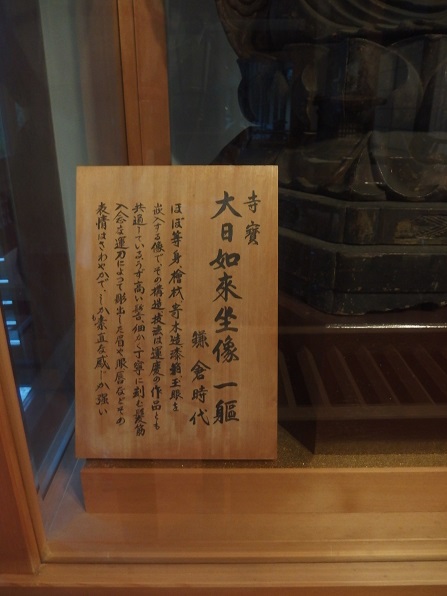 寺寳
大日如來坐像 一軀
鎌倉時代
ほぼ等身檜材寄木造漆箔玉眼を
嵌入する像で、その構造技法は運慶の作品とも
共通している、うず高い髻、細かく丁寧に刻む髪筋
入念な運刀によって彫出した眉や眼唇などその
表情はさわやかで、しか素直な感じが強い